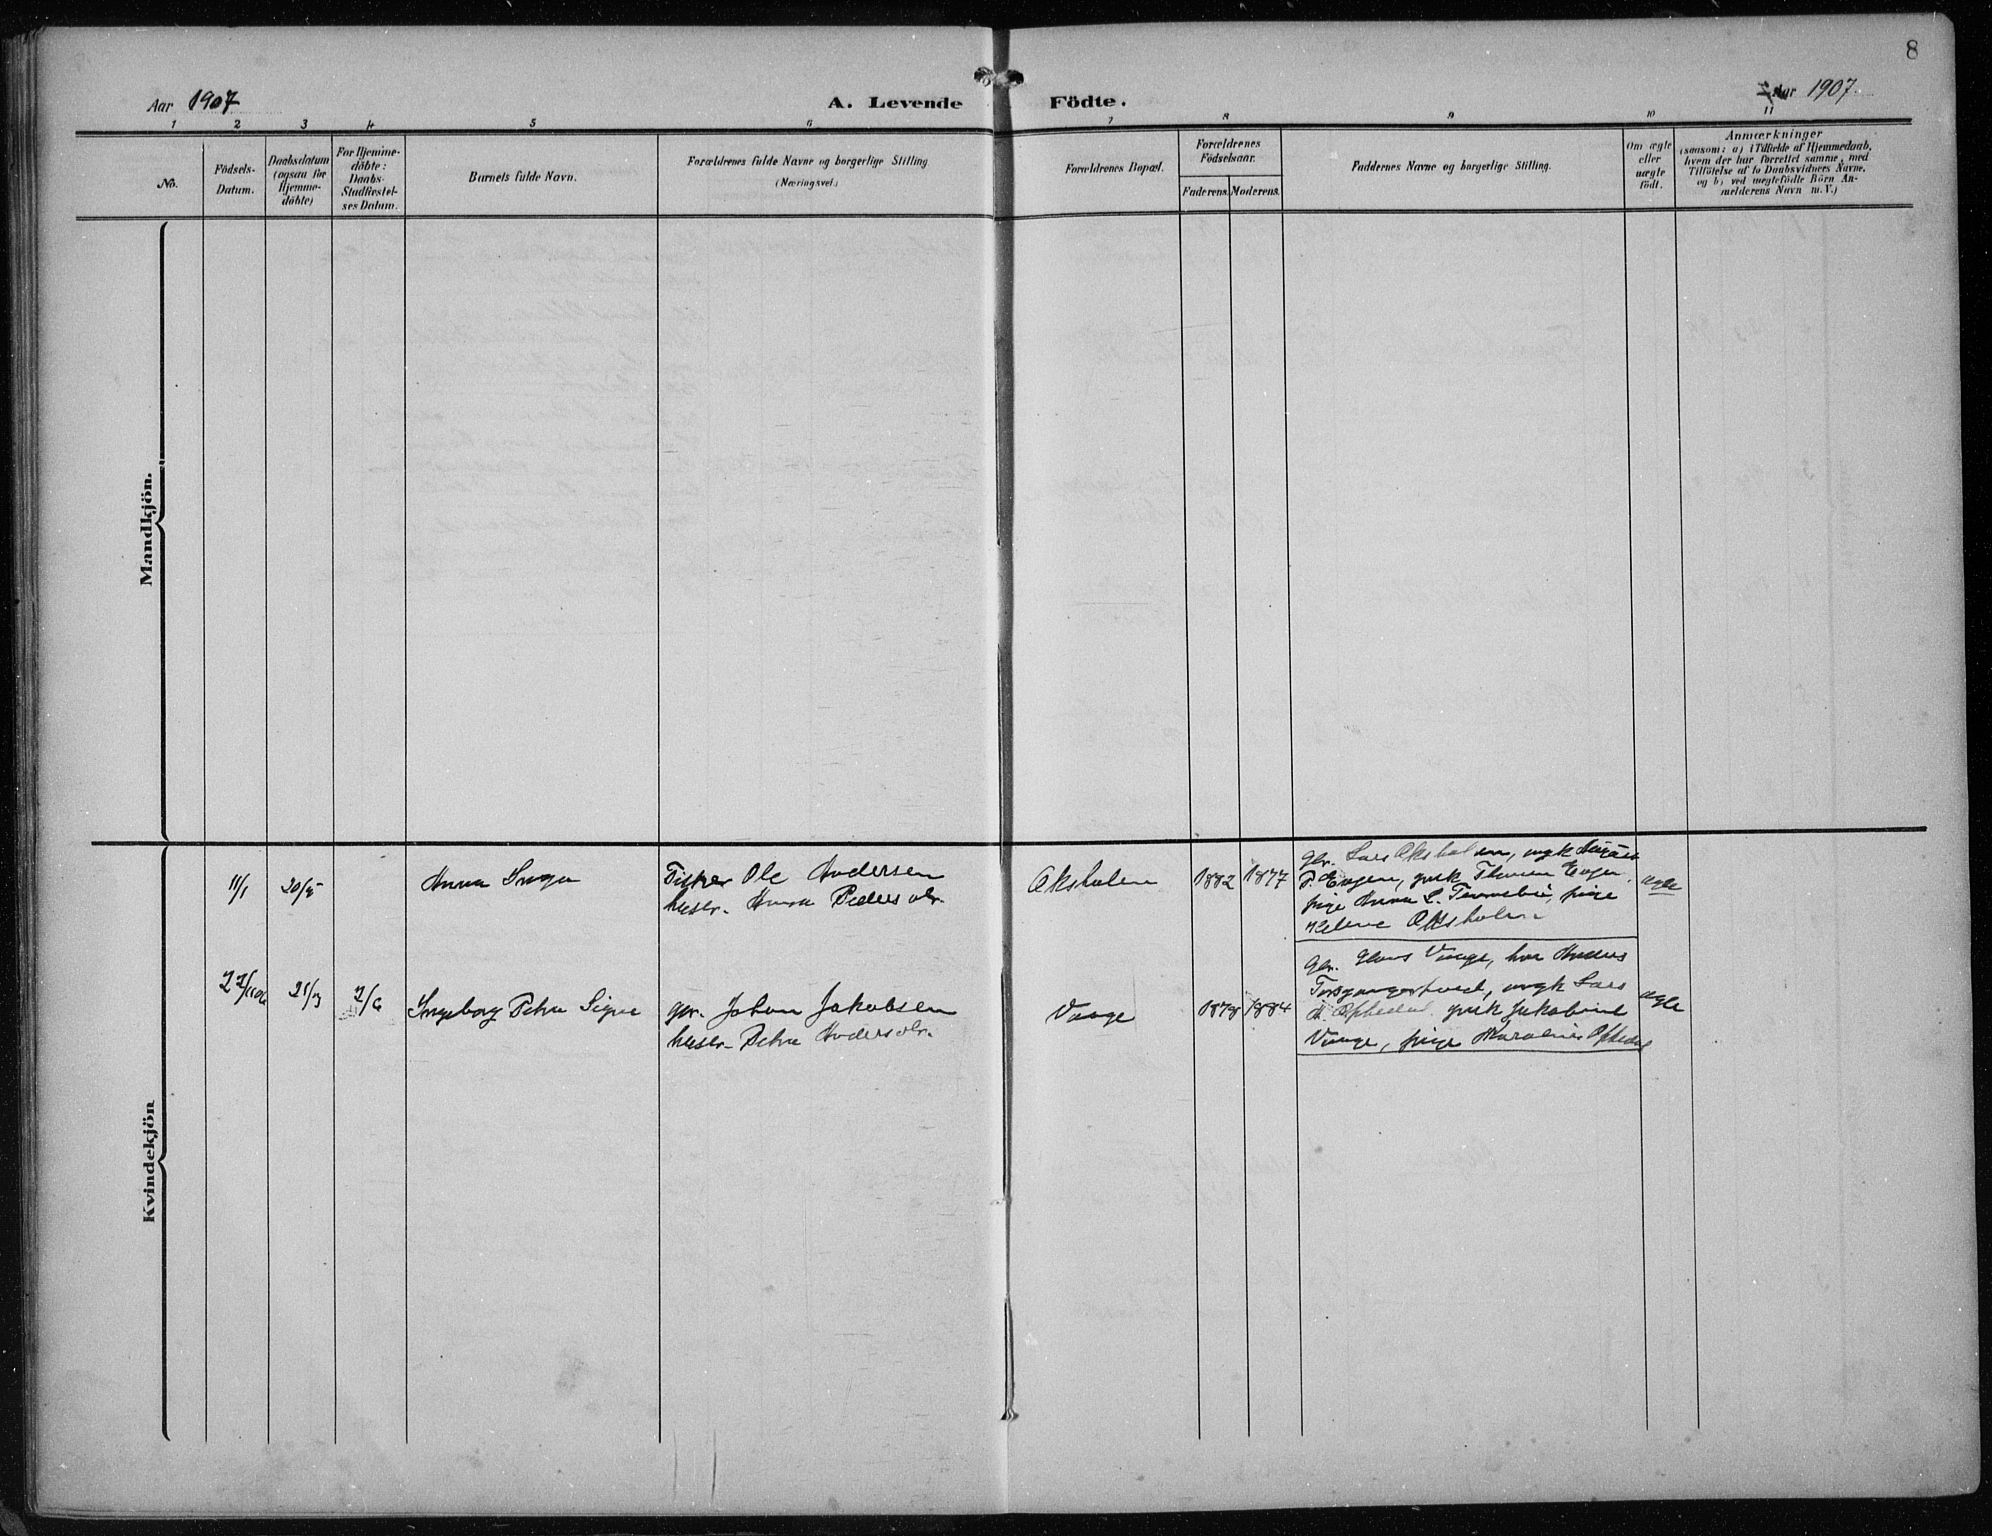 8
Aar 1907
A. Levende Födte.
Aar 1907.
1 2 3 4 5 6 7 8 9 10 11
No.
Födsels-
Datum.
Daabsdatum
(ogsaa for
Hjemme-
döbte)
For Hjemme-
döbte:
Daabs-
Stadfæstel-
ses Datum.
Barnets fulde Navn.
Forældrenes fulde Navne og borgerlige Stilling
(Næringsvei.)
Forældrenes Bopæl.
Forældrenes
Födselsaar.
Faderens. Moderens.
Faddernes Navne og borgerlige Stilling.
Om ægte
eller
uægte
född.
Anmærkninger
(saasom: a) i Tilfælde af Hjemmedaab,
hvem der har forrettet samme, med
Tilföielse af to Daabsvidners Navne,
og b) ved uægtefödte Börn An-
melderens Navn m. V.)
Mandkjön.
Kvindekjön
11/1
20/5
Anna Inga
Fisker Ole Andersen
hustr. Anna Pedersdtr.
Aksholen
1882
1877
gbr. Lars Aksholen, ungk
P. Evgen, gusk Thomine Evgen,
pige Anna L. pige
Helene Aksholen
ægte
21/3
2/6
Ingeborg Petra Signe
gbr. Johan Jakobsen
hustr. Petra Andersdtr.
Vaage
1878
1884
gbr. Vaage, Anders
ungk Lars
Ophedal gusk Jakobine
Vaage, pige Karoline Ophedal
ægte